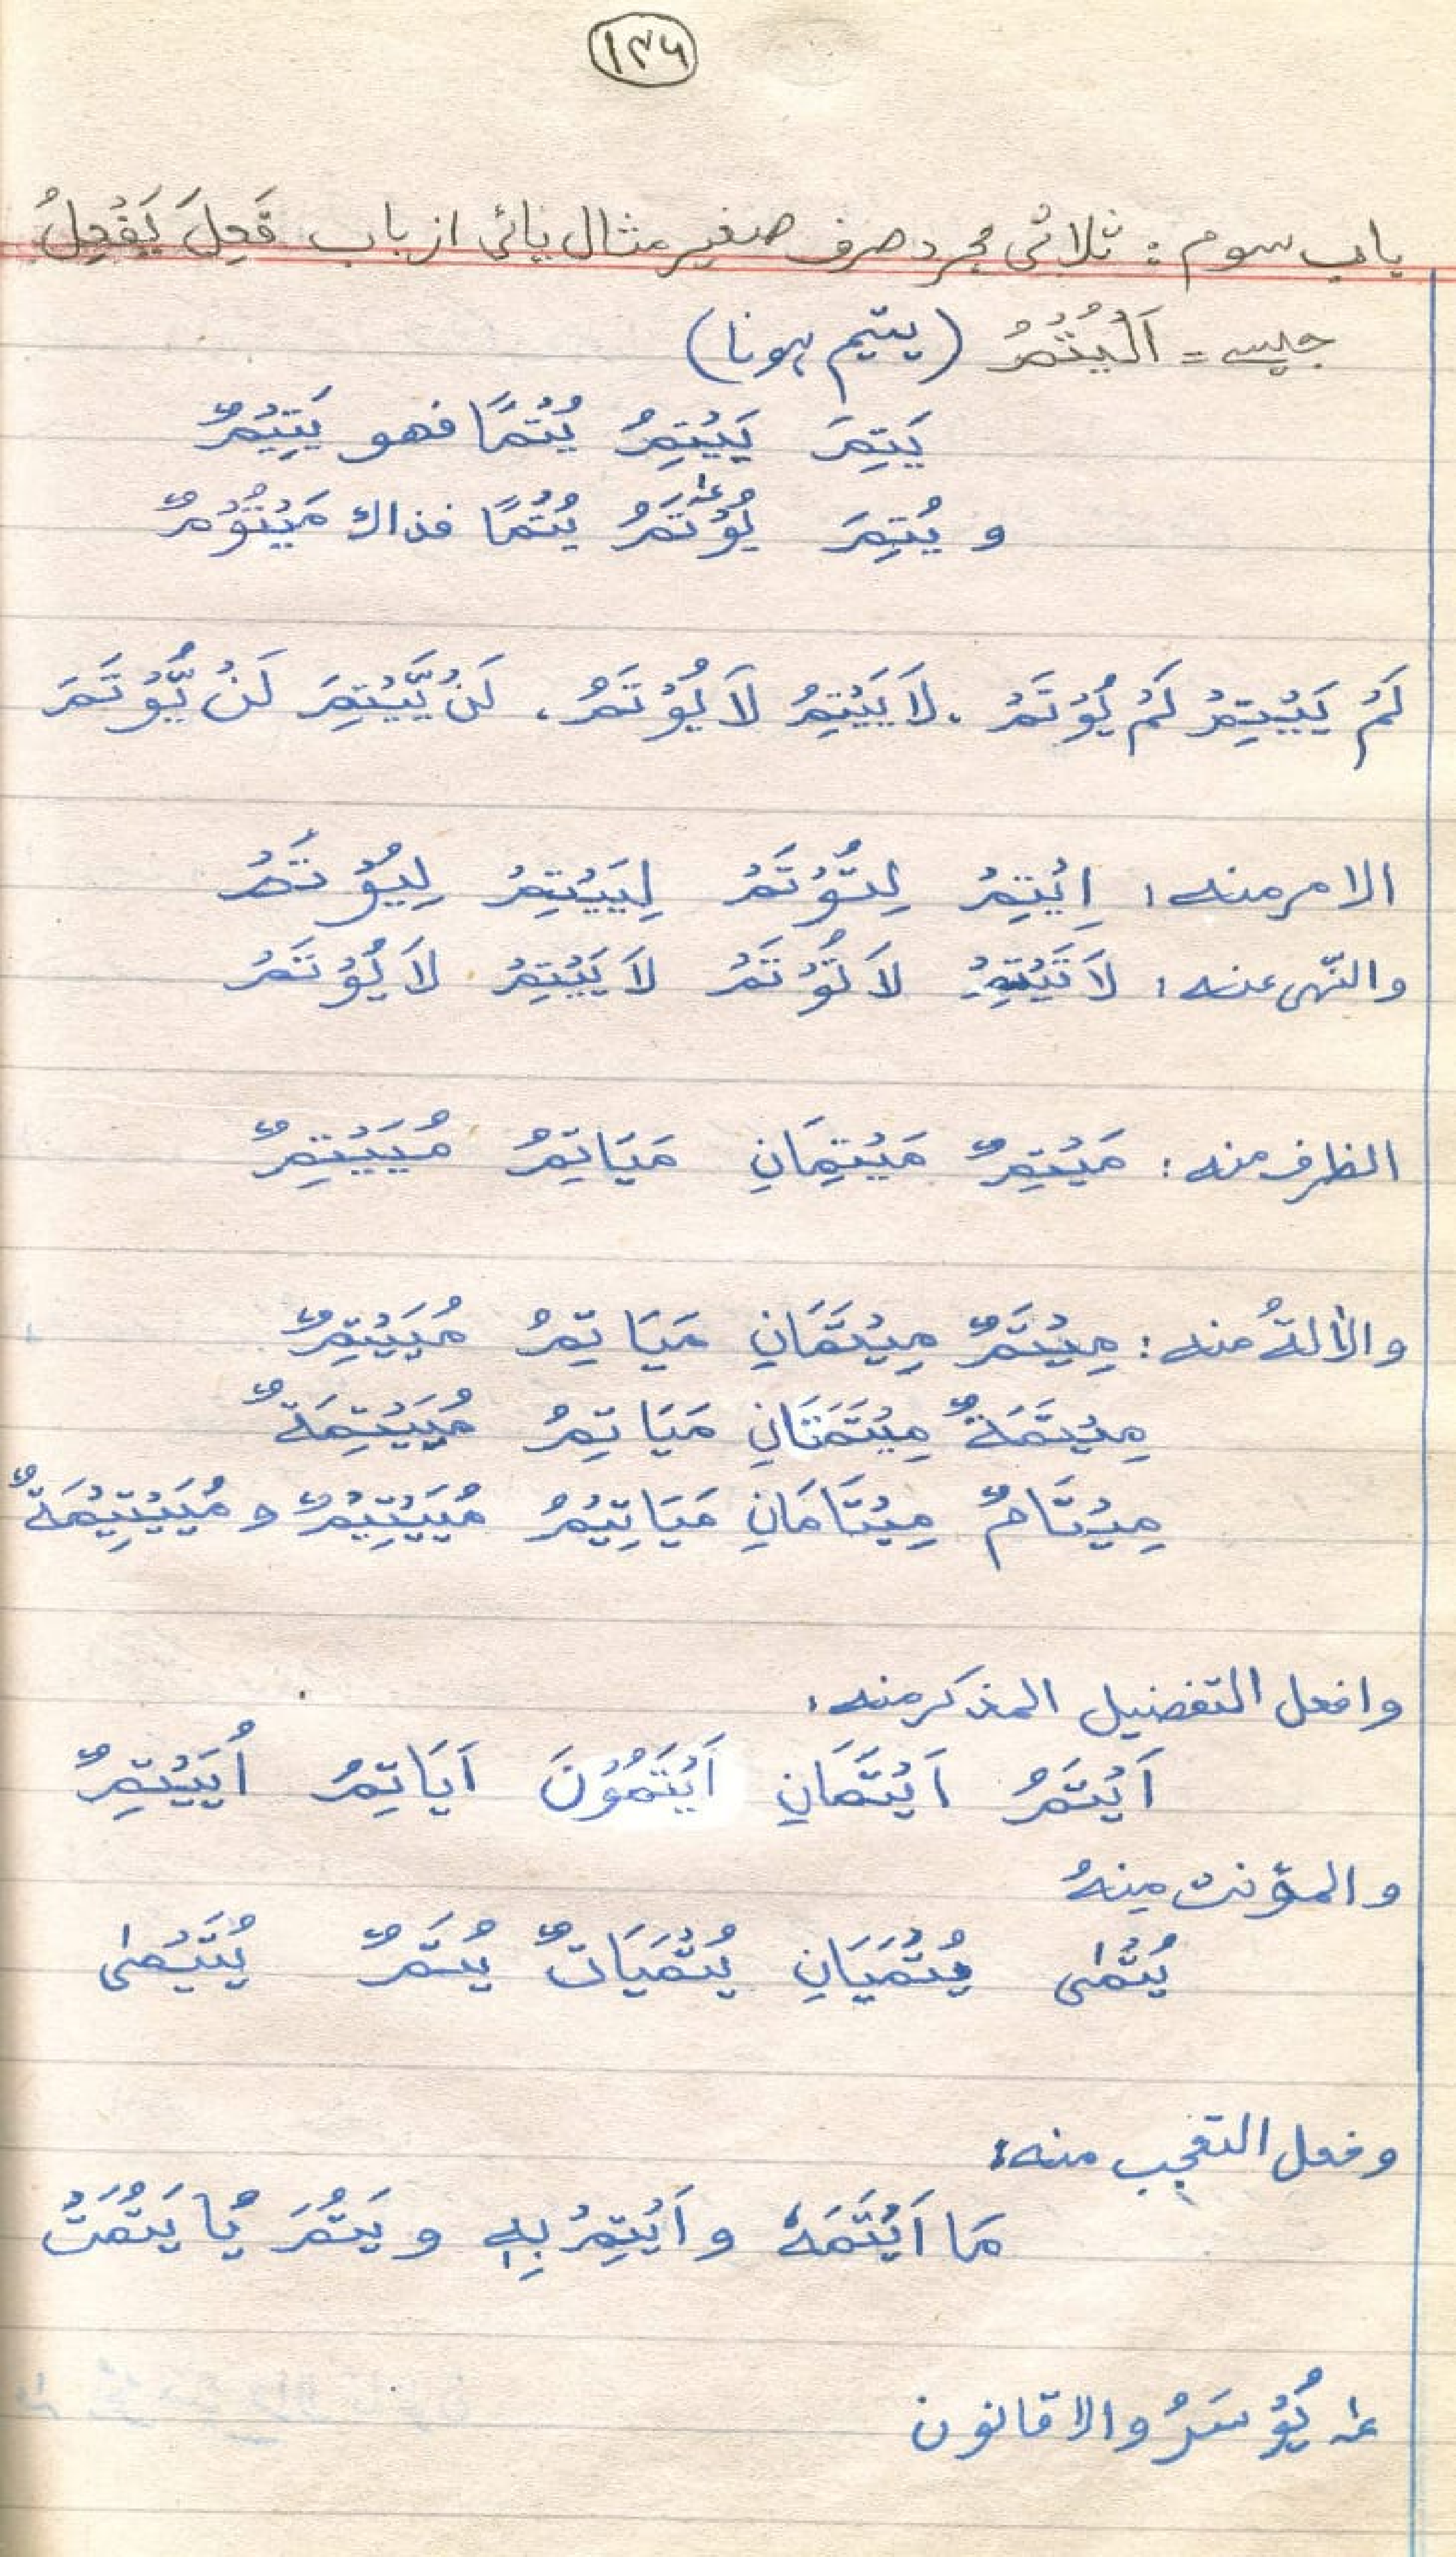 ۱۳۶
باب سوم : ثلاثی مجرد صرف صغیر مثال یائی از باب فَعِلَ يَفْعِلُ
جیسے = اَلْيُتْمُ (یتیم ہونا)
يَتِمَ يَيْتِمُ يُتْمًا فهو يَتِيْمٌ
و يُتِمَ يُوْتَمُ عـہ يُتْمًا فذاك مَيْتُوْمٌ
لَمْ يَيْتِمْ لَمْ يُوْتَمْ ، لَا يَيْتِمُ لَا يُوْتَمُ ، لَنْ يَّيْتِمَ لَنْ يُّوْتَمَ
الامر منه : اِيْتِمْ لِتُوْتَمْ لِيَيْتِمْ لِيُوْتَمْ
والنّهى عنه : لَا تَيْتِمْ لَا تُوْتَمْ لَا يَيْتِمْ لَا يُوْتَمْ
الظرف منه : مَيْتِمٌ مَيْتِمَانِ مَيَاتِمُ مُيَيْتِمٌ
والألةُ منه : مِيْتَمٌ مِيْتَمَانِ مَيَاتِمُ مُيَيْتِمٌ
مِيْتَمَةٌ مِيْتَمَتَانِ مَيَاتِمُ مُيَيْتِمَةٌ
مِيْتَامٌ مِيْتَامَانِ مَيَاتِيْمُ مُيَيْتِيْمٌ و مُيَيْتِيْمَةٌ
وافعل التفضيل المذكر منه :
اَيْتَمُ اَيْتَمَانِ اَيْتَمُوْنَ اَيَاتِمُ اُيَيْتِمٌ
والمؤنث مِنهُ
يُتْمٰى يُتْمَيَانِ يُتْمَيَاتٌ يُتَمٌ يُتَيْمٰى
وفعل التعجب منه :
مَا اَيْتَمَهٗ و اَيْتِمْ بِهٖ و يَتُمَ يَا يَتُمَتْ
عـہ يُوْسَرُ والا قانون